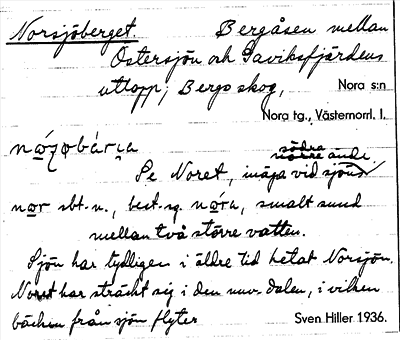 Norsjöberget. Bergåsen mellan
Östersjön och Gaviksfjärdens
utlopp; Bergs skog, Nora s:n
Nora tg., Västernorrl. l.
södra
Se Noret, inäga vid sjöns norre ände.
nor sbt. n., best. sg. smalt sund
mellan två större vatten.
Sjön har tydligen i äldre tid hetat Norsjön.
Noret har sträckt sig i den nuv. dalen, i vilken
bäcken från sjön flyter Sven Hiller 1936.